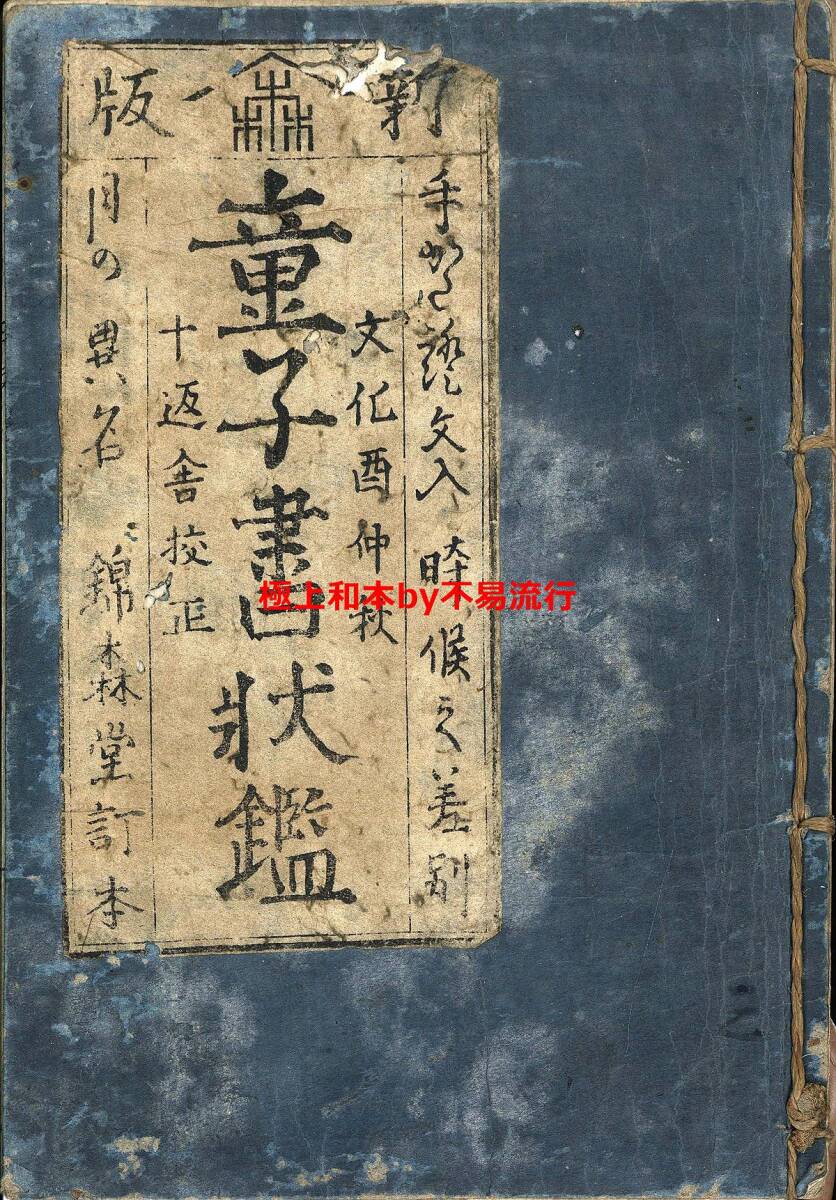 新版
手がた證文入 時候之差別
文化酉仲秋
童子書狀鑑
十返舎校正
月の異名 錦森堂訂本
極上和本by不易流行
二